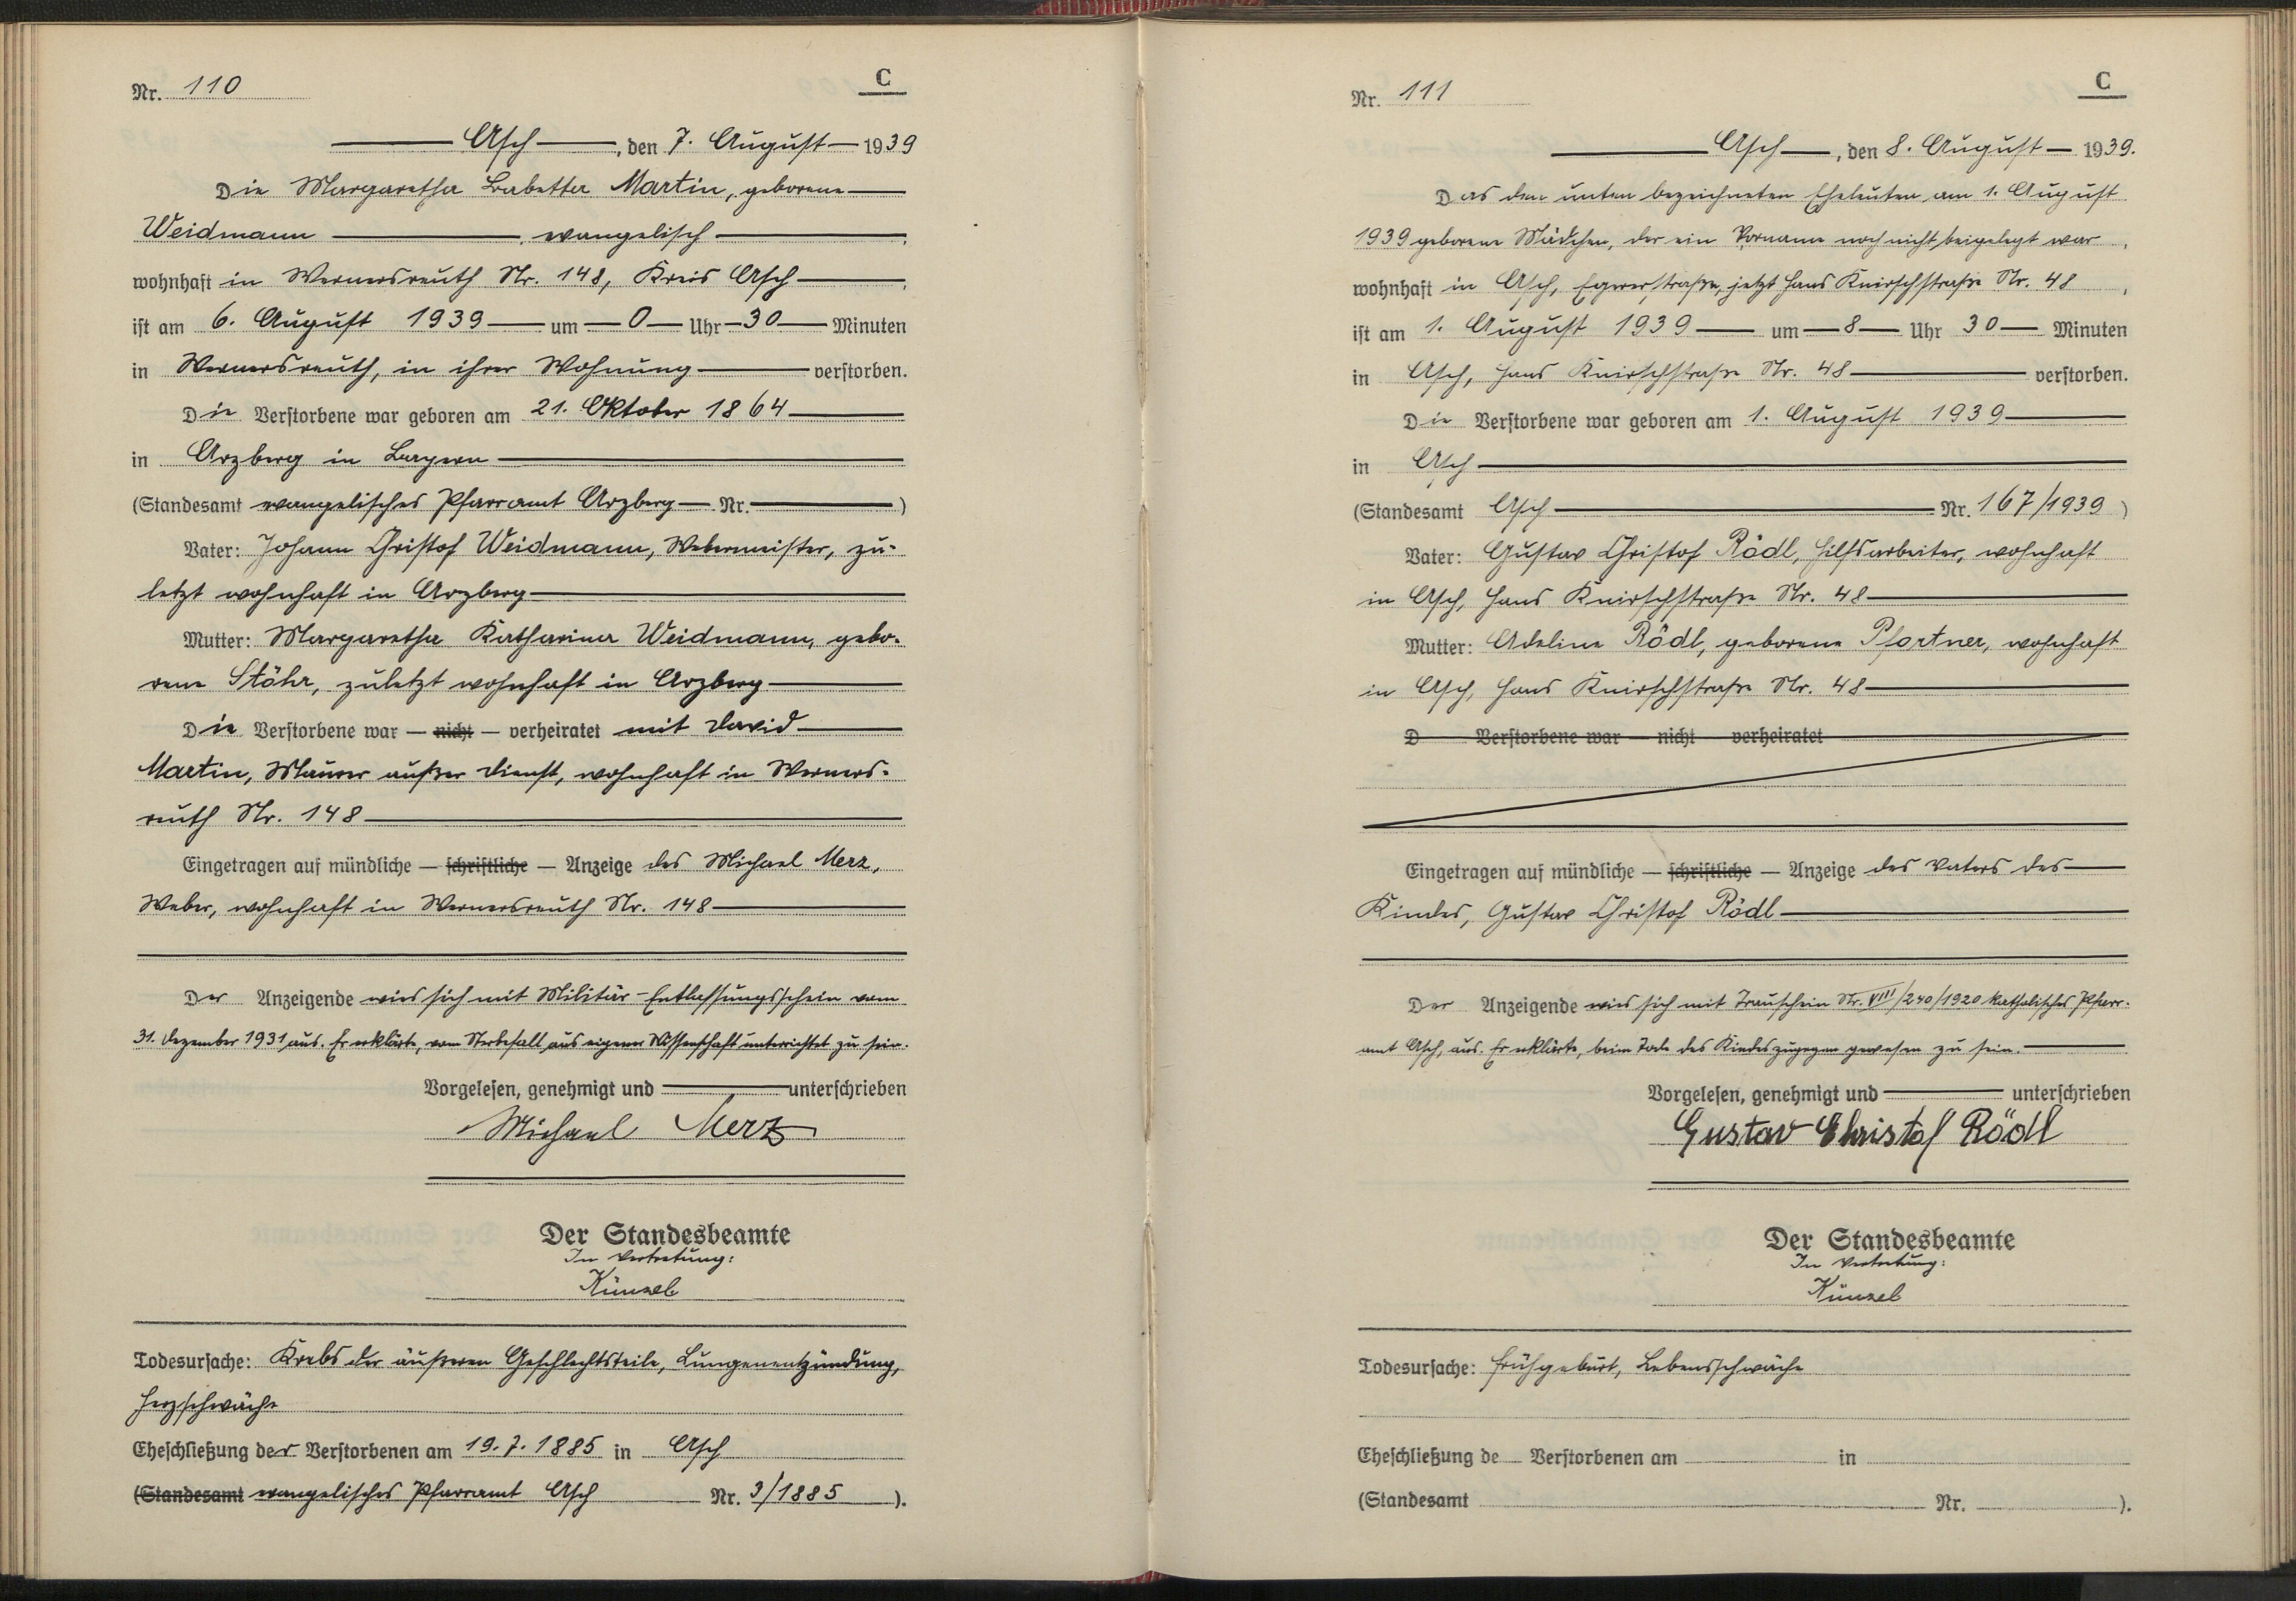 Nr. 110
C
Asch, den 7. August 1939
Die Margaretha Babetta Martin, geborene
Weidmann, evangelisch,
wohnhaft in Wernersreuth Nr. 148, Kreis Asch,
ist am 6. August 1939 um 0 Uhr 30 Minuten
in Wernersreuth, in ihrer Wohnung verstorben.
Die Verstorbene war geboren am 21. Oktober 1864
in Arzberg in Bayern
(Standesamt evangelisches Pfarramt Arzberg Nr. )
Vater: Johann Christof Weidmann, Webermeister, zu-
letzt wohnhaft in Arzberg
Mutter: Margaretha Katharina Weidmann, gebo-
rene Stöhr, zuletzt wohnhaft in Arzberg
Die Verstorbene war — nicht — verheiratet mit David
Martin, Maurer außer Dienst, wohnhaft in Werners-
reuth Nr. 148
Eingetragen auf mündliche — schriftliche — Anzeige des Michael Merz,
Weber, wohnhaft in Wernersreuth Nr. 148
Der Anzeigende wies sich mit Militär-Entlassungsschein vom
31. Dezember 1931 aus. Er erklärte, vom Sterbefall aus eigener Wissenschaft unterrichtet zu sein.
Vorgelesen, genehmigt und unterschrieben
Michael Merz
Der Standesbeamte
In Vertretung:
Künzel
Todesursache: Krebs der äußeren Geschlechtsteile, Lungenentzündung,
Herzschwäche
Eheschließung der Verstorbenen am 19.7.1885 in Asch
(Standesamt evangelisches Pfarramt Asch Nr. 3/1885 ).
Nr. 111
C
Asch, den 8. August 1939.
Das den unten bezeichneten Eheleuten am 1. August
1939 geborene Mädchen, der ein Vorname noch nicht beigelegt war,
wohnhaft in Asch, Egererstraße, jetzt Hans Knirschstraße Nr. 48,
ist am 1. August 1939 um 8 Uhr 30 Minuten
in Asch, Hans Knirschstraße Nr. 48 verstorben.
Die Verstorbene war geboren am 1. August 1939
in Asch
(Standesamt Asch Nr. 167/1939 )
Vater: Gustav Christof Rödl, Hilfsarbeiter, wohnhaft
in Asch, Hans Knirschstraße Nr. 48
Mutter: Adeline Rödl, geborene Pfortner, wohnhaft
in Asch, Hans Knirschstraße Nr. 48
D Verstorbene war — nicht — verheiratet
Eingetragen auf mündliche — schriftliche — Anzeige des Vaters des
Kindes, Gustav Christof Rödl
Der Anzeigende wies sich mit Trauschein Nr. VIII/240/1920 katholisches Pfarr-
amt Asch, aus. Er erklärte, beim Tode des Kindes zugegen gewesen zu sein.
Vorgelesen, genehmigt und unterschrieben
Gustav Christof Rödl
Der Standesbeamte
In Vertretung:
Künzel
Todesursache: Frühgeburt, Lebensschwäche
Eheschließung de Verstorbenen am in
(Standesamt Nr. ).